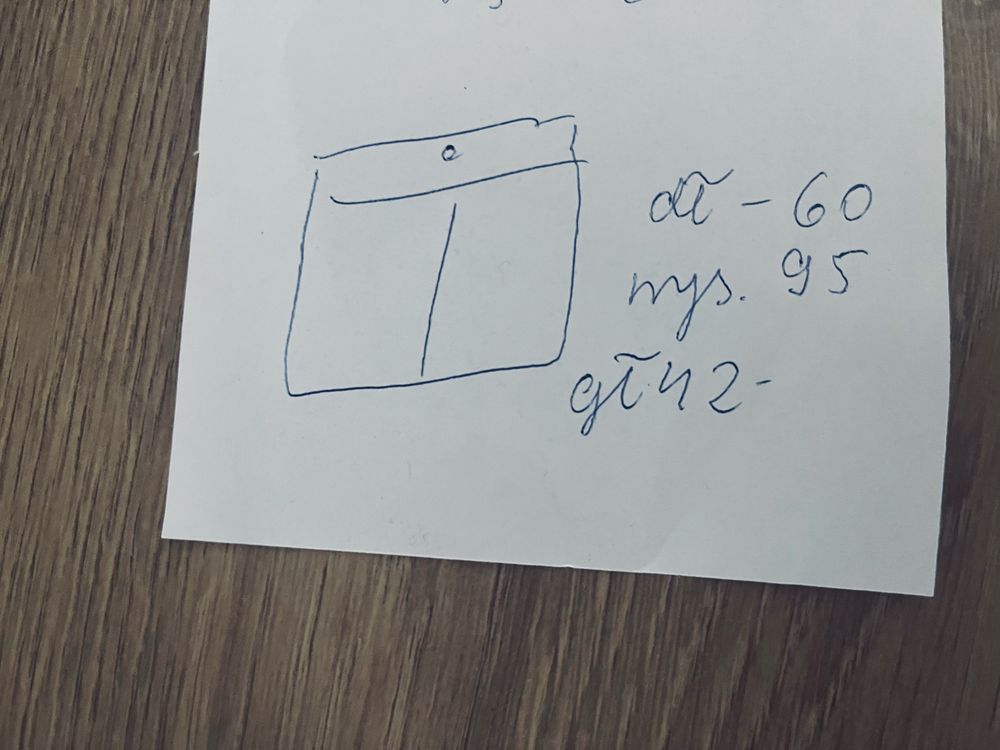 dł - 60
wys. 95
gł 42 -